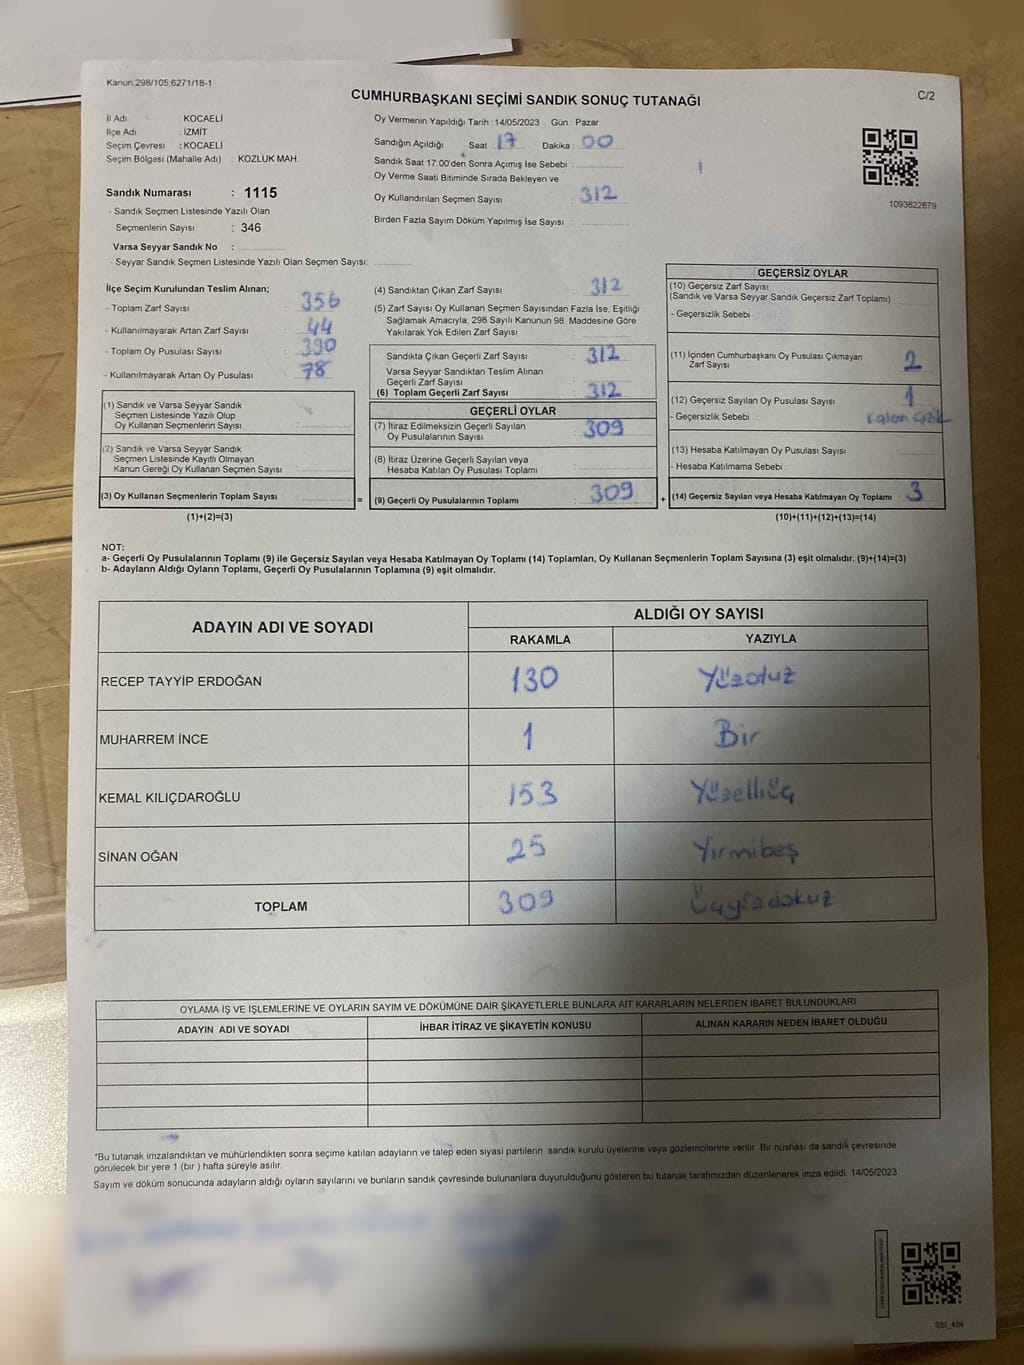 Kanun.298/105.6271/18-1
C/2
CUMHURBAŞKANI SEÇİMİ SANDIK SONUÇ TUTANAĞI
İl Adı : KOCAELİ
İlçe Adı : İZMİT
Seçim Çevresi : KOCAELİ
Seçim Bölgesi (Mahalle Adı) : KOZLUK MAH.
Sandık Numarası : 1115
- Sandık Seçmen Listesinde Yazılı Olan
Seçmenlerin Sayısı : 346
Varsa Seyyar Sandık No :
- Seyyar Sandık Seçmen Listesinde Yazılı Olan Seçmen Sayısı:
Oy Vermenin Yapıldığı Tarih : 14/05/2023 Gün : Pazar
Sandığın Açıldığı Saat : 17 Dakika : 00
Sandık Saat 17:00'den Sonra Açımış İse Sebebi :
Oy Verme Saati Bitiminde Sırada Bekleyen ve
Oy Kullandırılan Seçmen Sayısı : 312
Birden Fazla Sayım Döküm Yapılmış İse Sayısı :
1093822679
İlçe Seçim Kurulundan Teslim Alınan;
- Toplam Zarf Sayısı : 356
- Kullanılmayarak Artan Zarf Sayısı : 44
- Toplam Oy Pusulası Sayısı : 390
- Kullanılmayarak Artan Oy Pusulası : 78
(1) Sandık ve Varsa Seyyar Sandık
Seçmen Listesinde Yazılı Olup
Oy Kullanan Seçmenlerin Sayısı :
(2) Sandık ve Varsa Seyyar Sandık
Seçmen Listesinde Kayıtlı Olmayan
Kanun Gereği Oy Kullanan Seçmen Sayısı :
(3) Oy Kullanan Seçmenlerin Toplam Sayısı :
=
(1)+(2)=(3)
(4) Sandıktan Çıkan Zarf Sayısı : 312
(5) Zarf Sayısı Oy Kullanan Seçmen Sayısından Fazla İse, Eşitliği
Sağlamak Amacıyla, 298 Sayılı Kanunun 98. Maddesine Göre
Yakılarak Yok Edilen Zarf Sayısı :
Sandıkta Çıkan Geçerli Zarf Sayısı : 312
Varsa Seyyar Sandıktan Teslim Alınan
Geçerli Zarf Sayısı :
(6) Toplam Geçerli Zarf Sayısı : 312
GEÇERLİ OYLAR
(7) İtiraz Edilmeksizin Geçerli Sayılan
Oy Pusulalarının Sayısı : 309
(8) İtiraz Üzerine Geçerli Sayılan veya
Hesaba Katılan Oy Pusulası Toplamı :
(9) Geçerli Oy Pusulalarının Toplamı : 309
+
GEÇERSİZ OYLAR
(10) Geçersiz Zarf Sayısı
(Sandık ve Varsa Seyyar Sandık Geçersiz Zarf Toplamı) :
- Geçersizlik Sebebi :
(11) İçinden Cumhurbaşkanı Oy Pusulası Çıkmayan
Zarf Sayısı : 2
(12) Geçersiz Sayılan Oy Pusulası Sayısı : 1
- Geçersizlik Sebebi : kalem çizik
(13) Hesaba Katılmayan Oy Pusulası Sayısı :
- Hesaba Katılmama Sebebi :
(14) Geçersiz Sayılan veya Hesaba Katılmayan Oy Toplamı : 3
(10)+(11)+(12)+(13)=(14)
NOT:
a- Geçerli Oy Pusulalarının Toplamı (9) ile Geçersiz Sayılan veya Hesaba Katılmayan Oy Toplamı (14) Toplamları, Oy Kullanan Seçmenlerin Toplam Sayısına (3) eşit olmalıdır. (9)+(14)=(3)
b- Adayların Aldığı Oyların Toplamı, Geçerli Oy Pusulalarının Toplamına (9) eşit olmalıdır.
ADAYIN ADI VE SOYADI
ALDIĞI OY SAYISI
RAKAMLA YAZIYLA
RECEP TAYYİP ERDOĞAN 130 Yüzotuz
MUHARREM İNCE 1 Bir
KEMAL KILIÇDAROĞLU 153 Yüzelliüç
SİNAN OĞAN 25 Yirmibeş
TOPLAM 309 Üçyüzdokuz
OYLAMA İŞ VE İŞLEMLERİNE VE OYLARIN SAYIM VE DÖKÜMÜNE DAİR ŞİKAYETLERLE BUNLARA AİT KARARLARIN NELERDEN İBARET BULUNDUKLARI
ADAYIN ADI VE SOYADI İHBAR İTİRAZ VE ŞİKAYETİN KONUSU ALINAN KARARIN NEDEN İBARET OLDUĞU
*Bu tutanak imzalandıktan ve mühürlendikten sonra seçime katılan adayların ve talep eden siyasi partilerin sandık kurulu üyelerine veya gözlemcilerine verilir. Bir nüshası da sandık çevresinde
görülecek bir yere 1 (bir ) hafta süreyle asılır.
Sayım ve döküm sonucunda adayların aldığı oyların sayılarını ve bunların sandık çevresinde bulunanlara duyurulduğunu gösteren bu tutanak tarafımızdan düzenlenerek imza edildi. 14/05/2023
SSI_404